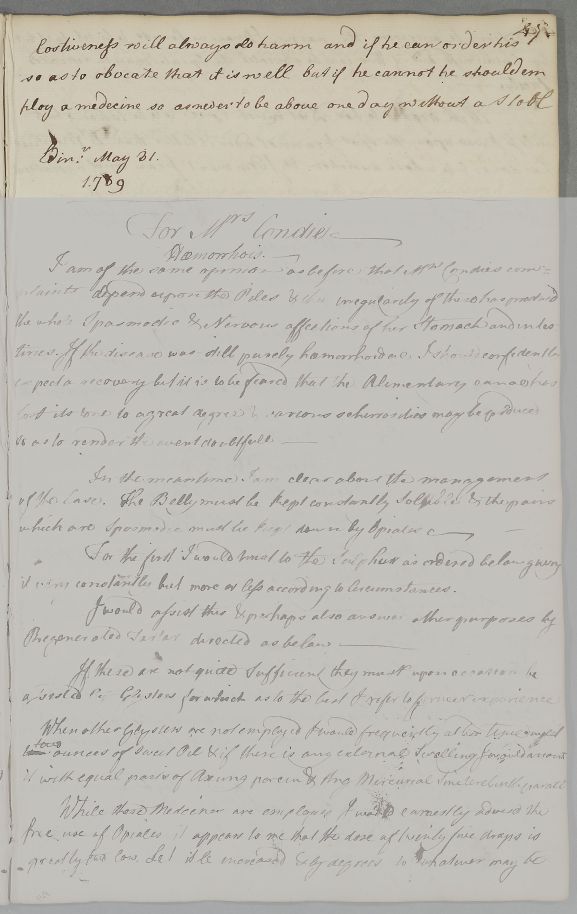 Costiveness will always do harm and if he can order his
so as to obveate that it is well but if he cannot he should em
ploy a medecine so as never to be above one day without a Stool
Edinr. May 31.
1789
For Mrs Condie
Hæmorrhois.
I am of the same opinion as before that Mrs Condies com=
plaints depend upon the Piles & the irregularity of these has produced
the whole Spasmodic & Nervous affections of her Stomach and intes
tines. If the disease was still purely hæmorrhoidal I should confidently
expect a recovery but it is to be feared that the Alimentary canal has
lost its tone to a great degree & various schirrosities may be produced
so as to render the event doubtfull
In the meantime I am clear about the management
of the Case. The Belly must be kept constantly Soluble & the pains
which are Spasmodic must be kept down by Opiates
For the first I would trust to the Sulphur as ordered below given
it very constantly but more or less according to Circumstances.
I would assist this & perhaps also answer other purposes by
Regenerated Tartar directed as below
If these are not quite Sufficient they must upon occasion be
assisted by Glysters for which as to the best I refer to former experience
When other Glysters are not employed I would frequently at bed time inject
two ounces of Sweet Oil & if there is any external Swelling I would anoint
it with equal parts of Axung porcin & the Mercurial
While these Medecines are employed I would earnestly advise the
free use of Opiates it appears to me that the dose of twenty five drops is
greatly too low. Let it be increased & by degrees to whatever may be